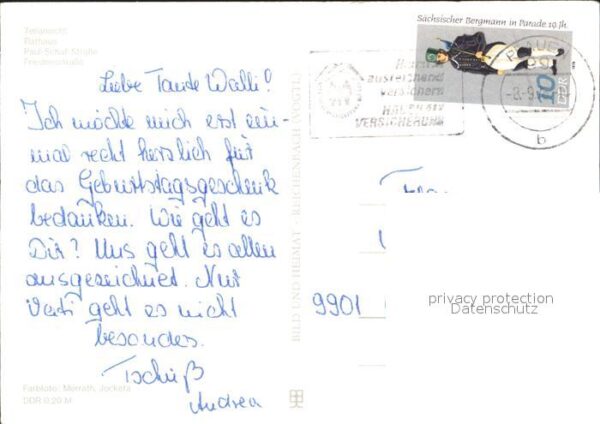 Teilansicht
Rathaus
Paul-Schuf-Straße
Friedensstraße
Liebe Tande Walli!
Ich möchte mich erst ein-
mal recht herzlich für
das Geburtstagsgeschenk
bedanken. Wie geht es
Dir? Uns geht es allen
ausgezeichnet. Nur
Vati geht es nicht
besondes.
Tschüß
Andrea
Farbfoto: Morrath, Jockera
DDR 0,20 bf
BILD UND HEIMAT · REICHENBACH (VOGTL)
Sächsischer Bergmann in Parade 19.Jh.
10
DDR
ausreichend
versichern
VERSICHERUNG
PLAUEN
b
9901
privacy protection
Datenschutz